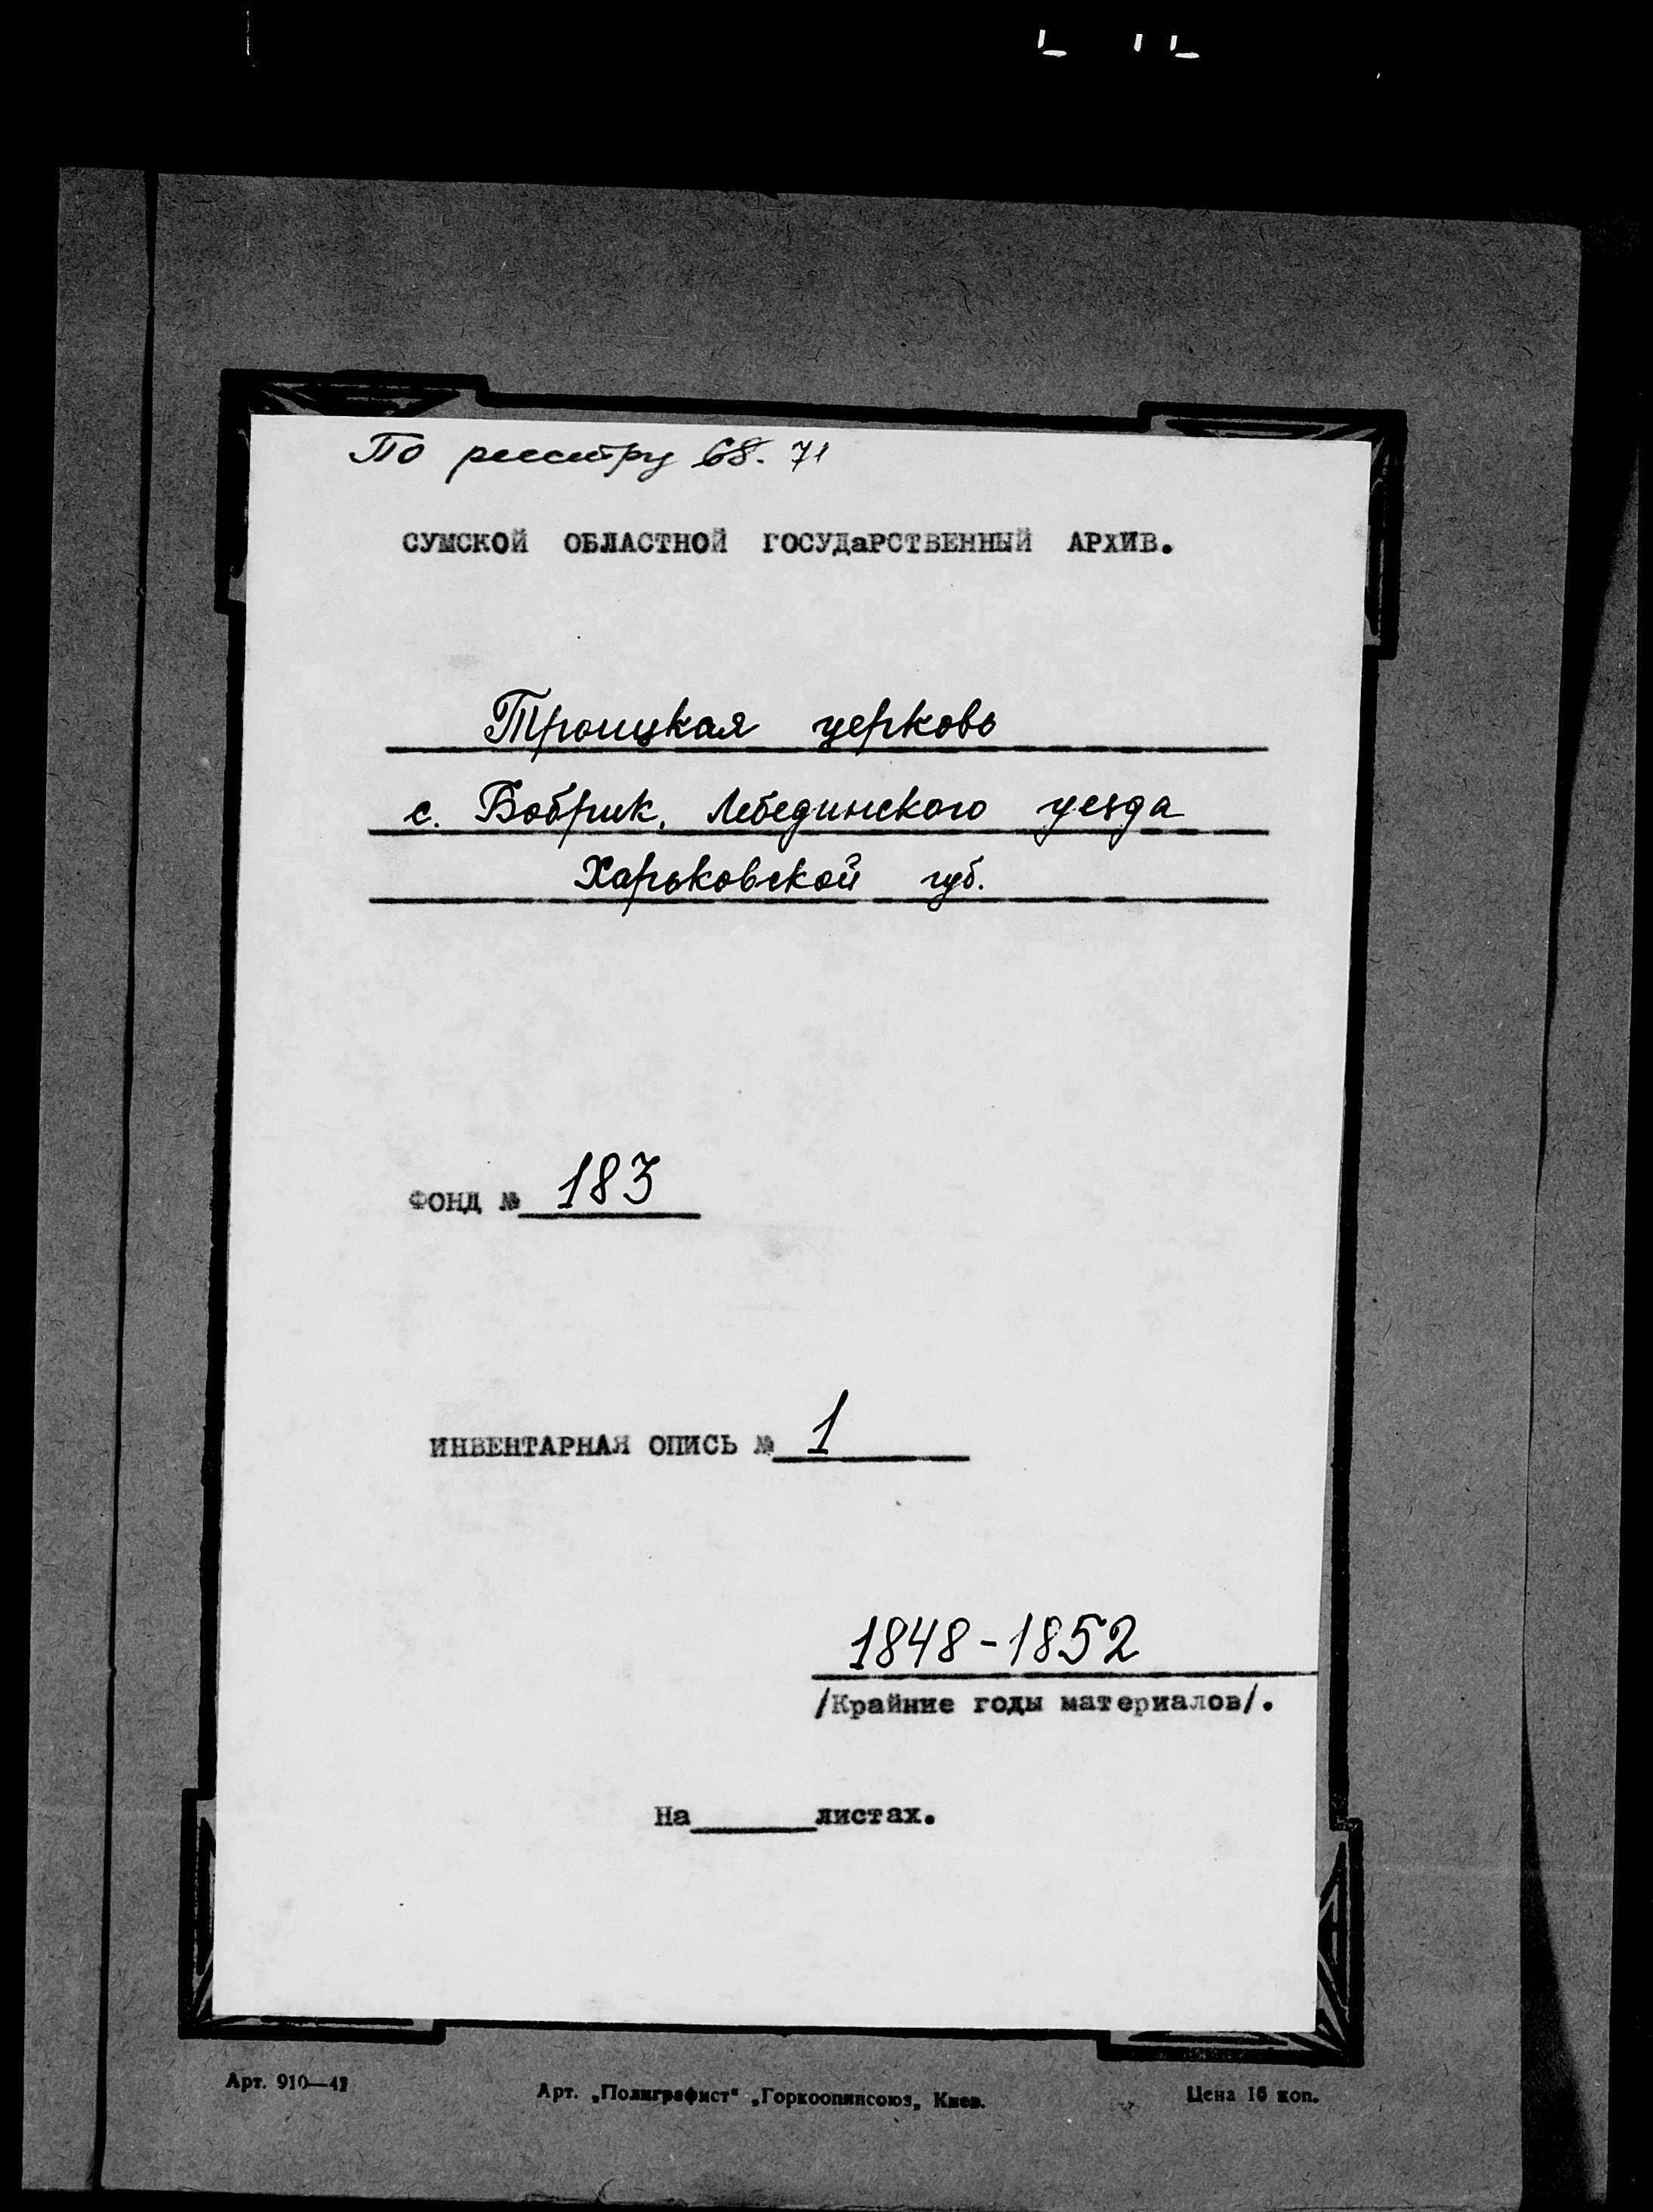 По реестру 68. 71
СУМСКОЙ ОБЛАСТНОЙ ГОСУДаРСТВЕННЫЙ АРХИВ.
Троицкая церковь
с. Бобрик, Лебединского уезда
Харьковской губ.
ФОНД № 183
ИНВЕНТАРНАЯ ОПИСЬ № 1
1848-1852
/Крайние годы материалов/.
На______листах.
Арт. 910—41 Арт. „Полиграфист“ „Горкоопинсоюз„ Киев. Цена 16 коп.